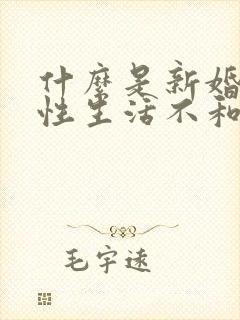 什麽是新婚
性生活不和
毛宇遠